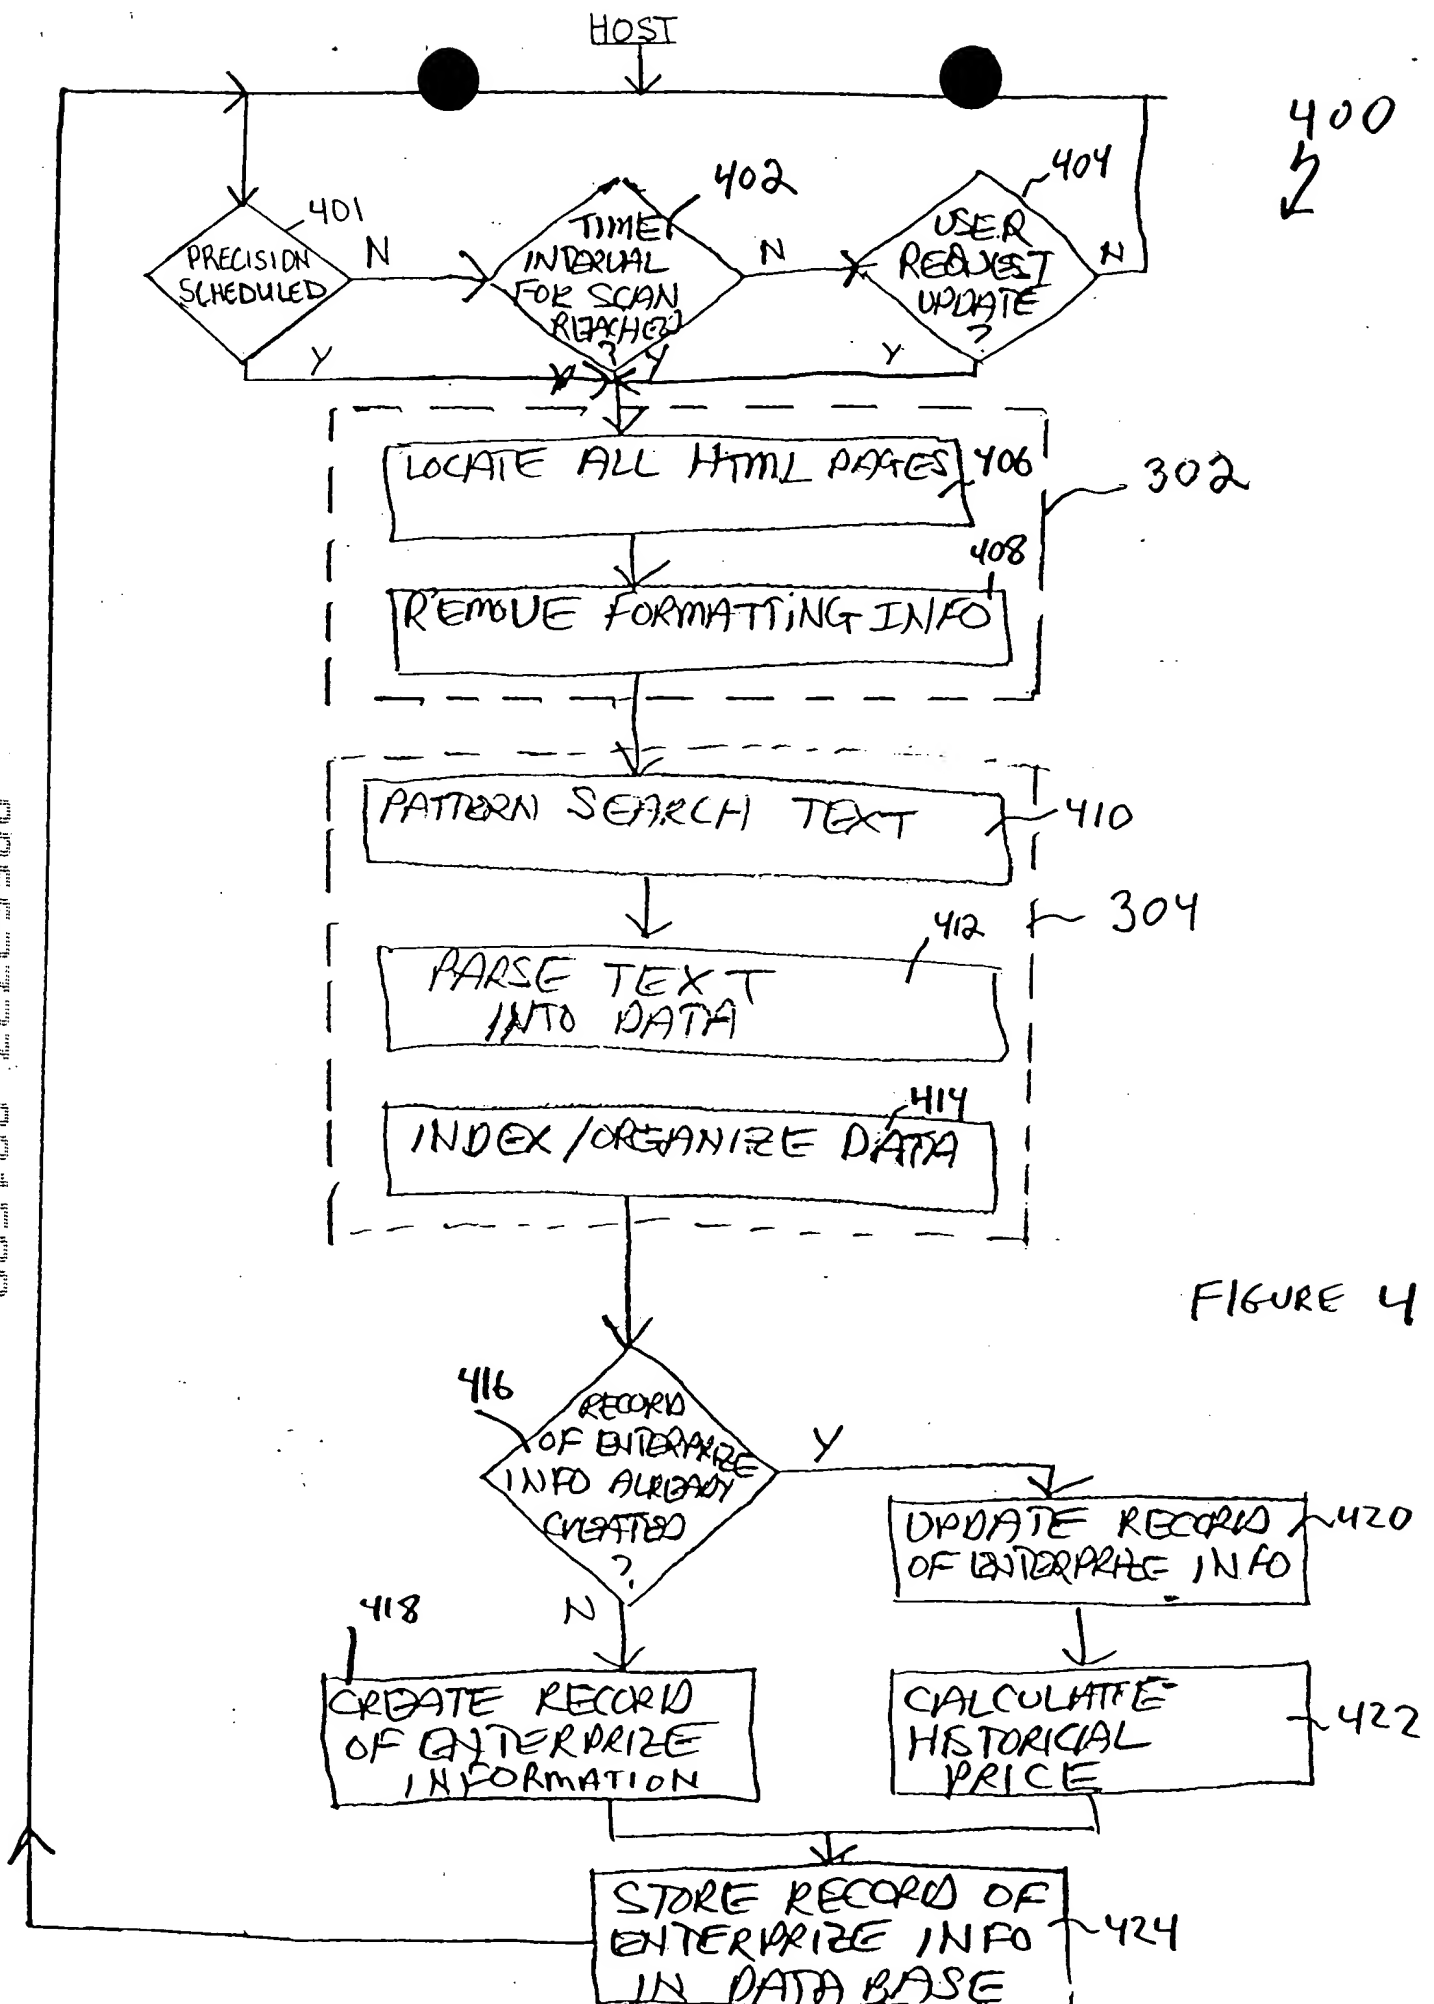 HOST
400
401
PRECISION
SCHEDULED
N
Y
402
TIME
INTERVAL
FOR SCAN
REACHED
?
N
Y
404
USER
REQUEST
UPDATE
?
N
Y
LOCATE ALL HTML PAGES
406
302
408
REMOVE FORMATTING INFO
PATTERN SEARCH TEXT
410
304
412
PARSE TEXT
INTO DATA
414
INDEX/ORGANIZE DATA
FIGURE 4
416
RECORD
OF ENTERPRIZE
INFO ALREADY
CREATED
?
Y
N
UPDATE RECORD
OF ENTERPRIZE INFO
420
418
CREATE RECORD
OF ENTERPRIZE
INFORMATION
CALCULATE
HISTORICIAL
PRICE
422
STORE RECORD OF
ENTERPRIZE INFO
IN DATA BASE
424